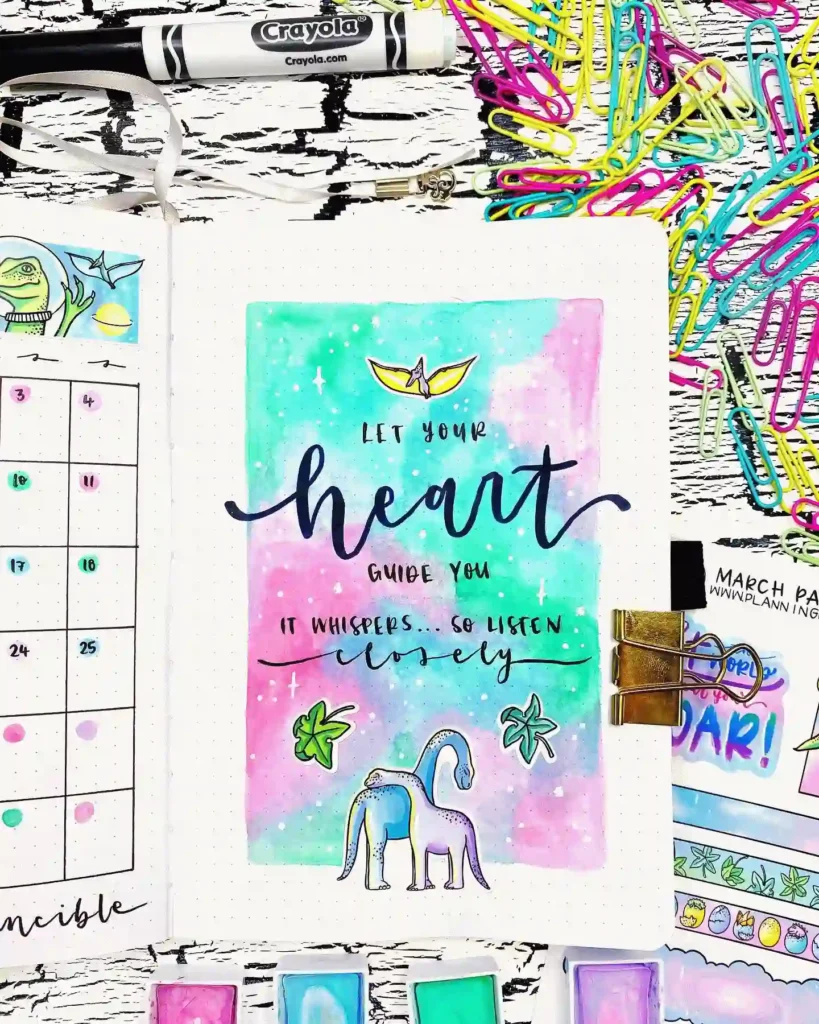 Crayola
Crayola.com
3 4
10 11
17 18
24 25
LET YOUR
heart
GUIDE YOU
IT WHISPERS... SO LISTEN
closely
MARCH PA
WWW.PLANNING
WORLD
OAR!
ncible